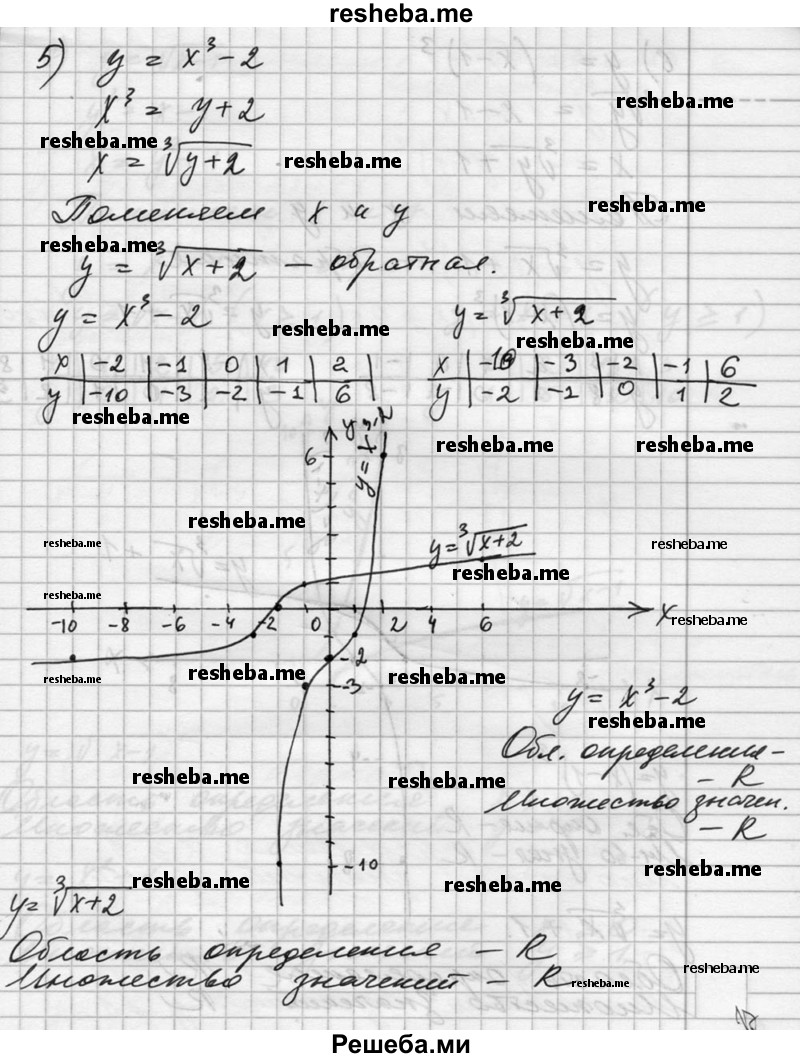 resheba.me
5) y = x³ - 2
x³ = y + 2
resheba.me
resheba.me
x = ∛(y+2)
resheba.me
Поменяем x и y
resheba.me
resheba.me
y = ∛(x+2) — обратная.
y = x³ - 2
resheba.me
y = ∛(x+2)
resheba.me
x | -2 | -1 | 0 | 1 | 2
y | -10 | -3 | -2 | -1 | 6
x | -10 | -3 | -2 | -1 | 6
y | -2 | -1 | 0 | 1 | 2
resheba.me
y
y = x³-2
resheba.me
resheba.me
6
resheba.me
y = ∛(x+2)
resheba.me
resheba.me
resheba.me
resheba.me
-10 -8 -6 -4 -2 0 2 4 6 x
resheba.me
-2
resheba.me
resheba.me
resheba.me
-3
y = x³ - 2
resheba.me
Обл. определения -
- R
resheba.me
resheba.me
Множество значен.
- R
-10
resheba.me
resheba.me
resheba.me
y = ∛(x+2)
Область определения - R
Множество значений - R
resheba.me
resheba.me
Решеба.ми